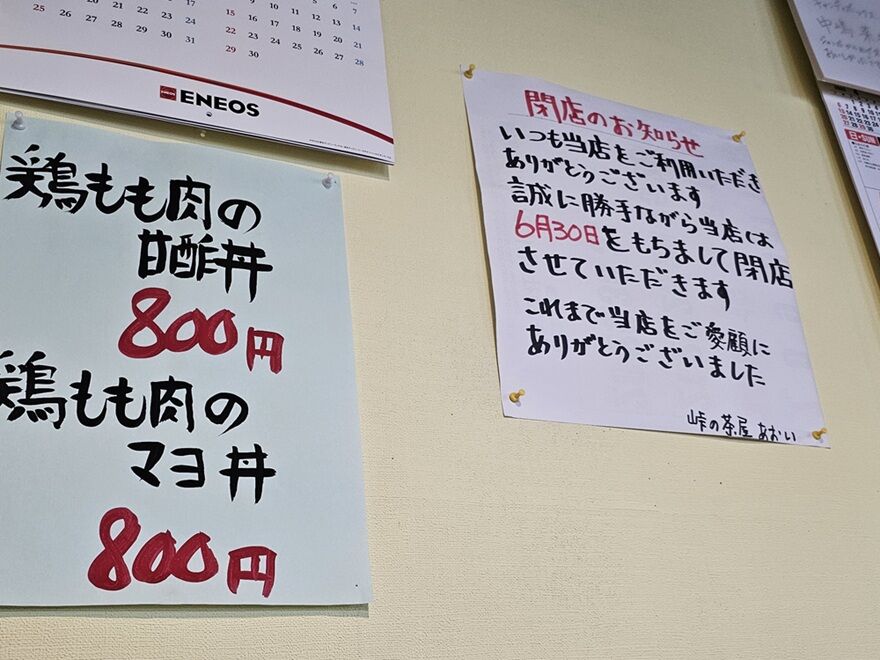 25 26 27 28 29 30 31
15 16 17 18 19 20 21
22 23 24 25 26 27 28
29 30
ENEOS
鶏もも肉の
甘酢丼
800円
鶏もも肉の
マヨ丼
800円
閉店のお知らせ
いつも当店をご利用いただき
ありがとうございます
誠に勝手ながら当店は
6月30日をもちまして閉店
させていただきます
これまで当店をご愛顧に
ありがとうございました
峠の茶屋 あおい